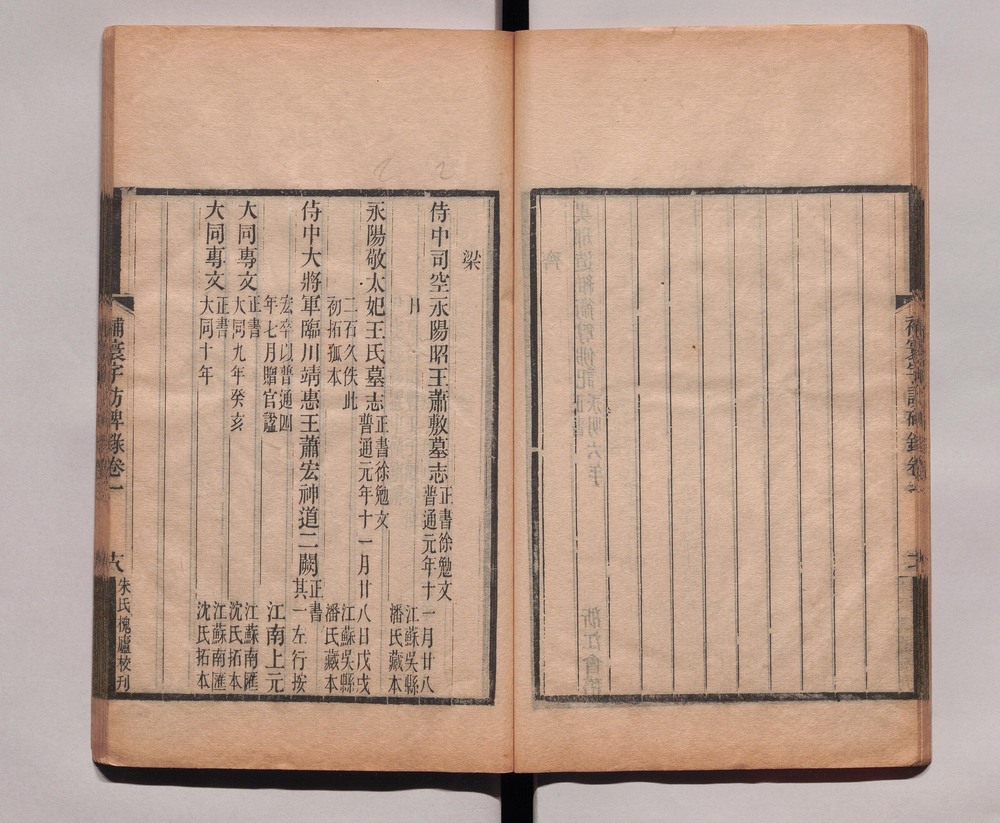 補寰宇訪碑錄卷
梁
侍中司空永陽昭王蕭敷墓志 正書徐勉文
普通元年十一月廿八
日 江蘇吳縣
潘氏藏本
永陽敬太妃王氏墓志 正書徐勉文
普通元年十一月廿八日戊戌
二石久佚此 江蘇吳縣
初拓孤本 潘氏藏本
侍中大將軍臨川靖惠王蕭宏神道二闕 正書
其一左行按
宏卒以普通四
年七月贈官諡 江南上元
大同專文 正書 江蘇南匯
大同九年癸亥 沈氏拓本
大同專文 正書 江蘇南匯
大同十年 沈氏拓本
補寰宇訪碑錄卷一
朱氏槐廬校刊